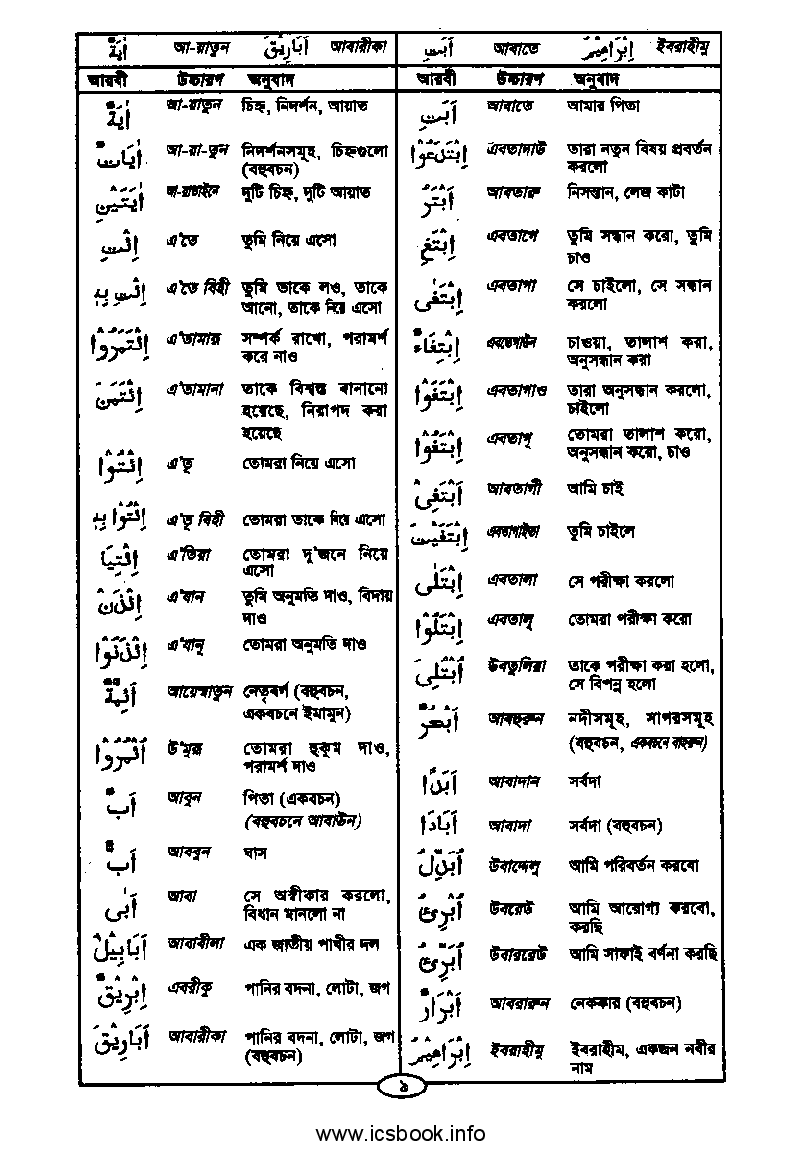 اٰيَةٌ আ-য়াতুন اَبَارِيْقَ আবারীকা
আরবী উচ্চারণ অনুবাদ
اٰيَةٌ আ-য়াতুন চিহ্ন, নিদর্শন, আয়াত
اٰيَاتٌ আ-য়া-তুন নিদর্শনসমূহ, চিহ্নগুলো
(বহুবচন)
اٰيَتَيْنِ আ-য়াতাইনে দুটি চিহ্ন, দুটি আয়াত
اِئْتِ এ'তে তুমি নিয়ে এসো
اِئْتِ بِهٖ এ'তে বিহী তুমি তাকে লও, তাকে
আনো, তাকে নিয়ে এসো
اِئْتَمِرُوْا এ'তামারু সম্পর্ক রাখো, পরামর্শ
করে নাও
اِئْتَمَنَ এ'তামানা তাকে বিশ্বস্ত বানানো
হয়েছে, নিরাপদ করা
হয়েছে
اِئْتُوْا এ'তু তোমরা নিয়ে এসো
اِئْتُوْا بِهٖ এ'তু বিহী তোমরা তাকে নিয়ে এসো
اِئْتِيَا এ'তিয়া তোমরা দু'জনে নিয়ে
এসো
اِئْذَنْ এ'যান তুমি অনুমতি দাও, বিদায়
দাও
اِئْذَنُوْا এ'যানূ তোমরা অনুমতি দাও
اَئِمَّةٌ আয়েম্মাতুন নেতৃবর্গ (বহুবচন,
একবচনে ইমামুন)
উ'মুরু তোমরা হুকুম দাও,
পরামর্শ দাও
اَبٌ আবুন পিতা (একবচন)
(বহুবচনে আবাউন)
اَبٌّ আববুন ঘাস
اَبٰى আবা সে অস্বীকার করলো,
বিধান মানলো না
اَبَابِيْلَ আবাবীলা এক জাতীয় পাখীর দল
اِبْرِيْقٌ এবরীকু পানির বদনা, লোটা, জগ
اَبَارِيْقَ আবারীকা পানির বদনা, লোটা, জগ
(বহুবচন)
اَبَتِ আবাতে اِبْرَاهِيْمُ ইবরাহীমু
আরবী উচ্চারণ অনুবাদ
اَبَتِ আবাতে আমার পিতা
اِبْتَدَعُوْا এবতাদাউ তারা নতুন বিষয় প্রবর্তন
করলো
اَبْتَرُ আবতারু নিসন্তান, লেজ কাটা
اِبْتَغِ এবতাগে তুমি সন্ধান করো, তুমি
চাও
اِبْتَغٰى এবতাগা সে চাইলো, সে সন্ধান
করলো
اِبْتِغَاءٌ এবতেগাউন চাওয়া, তালাশ করা,
অনুসন্ধান করা
اِبْتَغَوْا এবতাগাও তারা অনুসন্ধান করলো,
চাইলো
اِبْتَغُوْا এবতাগূ তোমরা তালাশ করো,
অনুসন্ধান করো, চাও
اَبْتَغِىْ আবতাগী আমি চাই
اِبْتَغَيْتَ এবতাগাইতা তুমি চাইলে
اِبْتَلٰى এবতালা সে পরীক্ষা করলো
اِبْتَلُوْا এবতালূ তোমরা পরীক্ষা করো
اُبْتُلِىَ উবতুলিয়া তাকে পরীক্ষা করা হলো,
সে বিপন্ন হলো
اَبْحُرٌ আবহুরুন নদীসমূহ, সাগরসমূহ
(বহুবচন, একবচনে বাহরুন)
اَبَدًا আবাদান সর্বদা
اٰبَادَا আবাদা সর্বদা (বহুবচন)
اُبَدِّلُ উবাদ্দেলু আমি পরিবর্তন করবো
اُبْرِئُ উবরেউ আমি আরোগ্য করবো,
করছি
اُبَرِّئُ উবাররেউ আমি সাফাই বর্ণনা করছি
اَبْرَارٌ আবরারুন নেককার (বহুবচন)
اِبْرَاهِيْمُ ইবরাহীমু ইবরাহীম, একজন নবীর
নাম
৯
www.icsbook.info